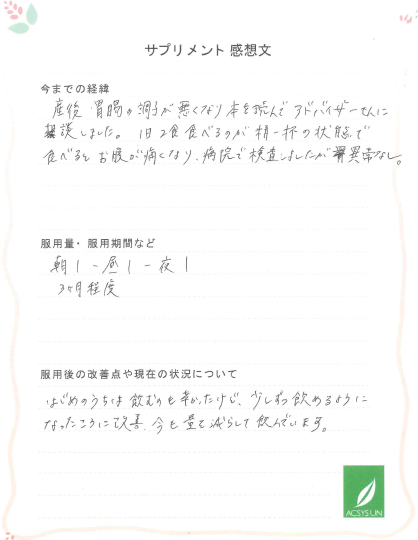 サプリメント 感想文
今までの経緯
産後 胃腸の調子が悪くなり本を読んでアドバイザーさんに
相談しました。1日2食食べるのが精一杯の状態で
食べると お腹が痛くなり、病院で検査しましたが異常なし。
服用量・服用期間など
朝1-昼1-夜1
3ヶ月程度
服用後の改善点や現在の状況について
はじめのうちは飲むのも辛かったけど、少しずつ飲めるように
なったころに改善、今も量を減らして飲んでいます。
ACSYSUN